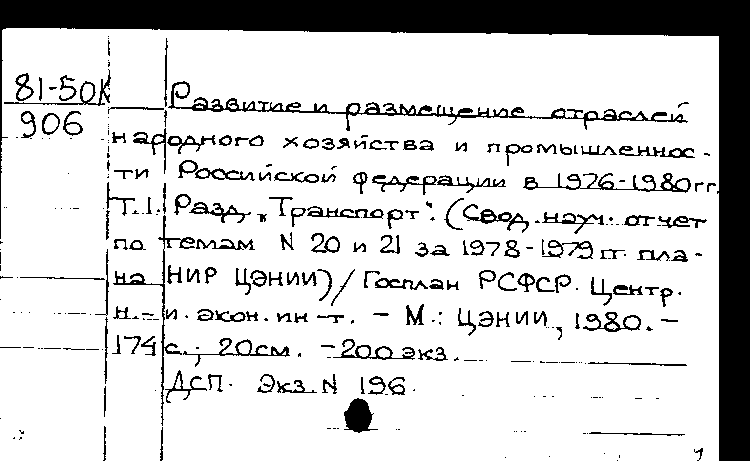 81-50К
906
Развитие и размещение отраслей
народного хозяйства и промышленнос-
ти Российской федерации в 1976-1980гг.
Т.1. Разд. „Транспорт". (Свод. науч. отчет
по темам N 20 и 21 за 1978-1979гг. пла-
на НИР ЦЭНИИ)/Госплан РСФСР. Центр.
н.-и. экон. ин-т. - М.: ЦЭНИИ, 1980. -
174 с.; 20см. - 200 экз.
ДСП. Экз. N 196.